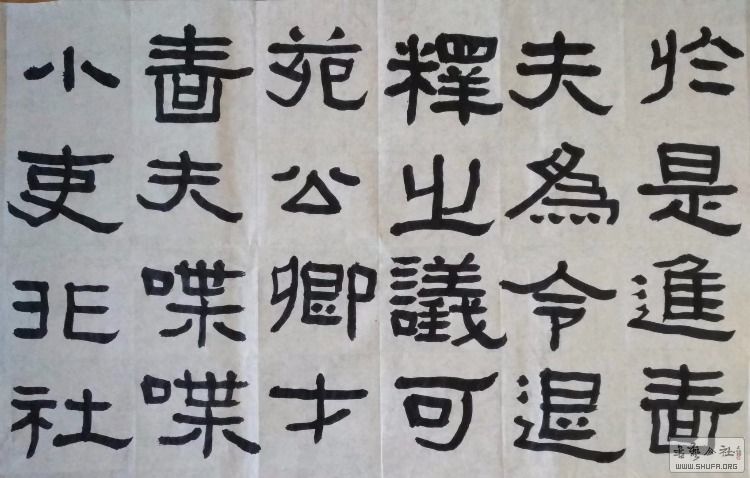 於是進嗇
夫為令退
釋之議可
苑公卿才
嗇夫喋喋
小吏非社
書藝公社
WWW.SHUFA.ORG